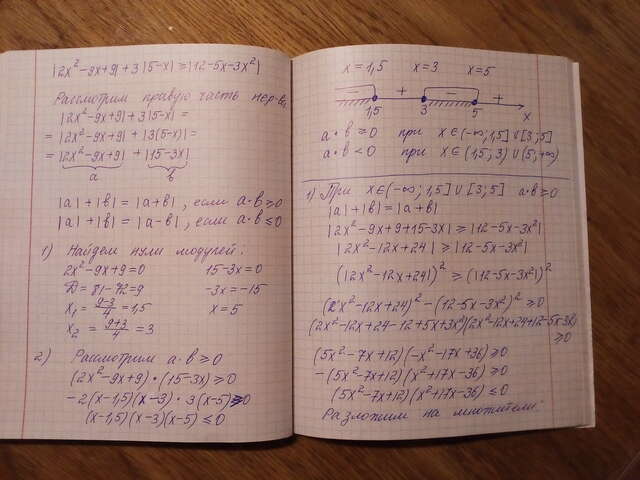 |2x²-9x+9|+3|5-x| ≥ |12-5x-3x²|
Рассмотрим правую часть нер-ва,
|2x²-9x+9|+3|5-x| =
= |2x²-9x+9| + |3(5-x)| =
= |2x²-9x+9| + |15-3x|
a b
|a|+|b| = |a+b|, если a·b ≥ 0
|a|+|b| = |a-b|, если a·b ≤ 0
1) Найдем нули модулей:
2x²-9x+9=0 15-3x=0
D = 81-72=9 -3x=-15
x₁ = 9-3/4 = 1,5 x=5
x₂ = 9+3/4 = 3
2) Рассмотрим a·b ≥ 0
(2x²-9x+9)·(15-3x) ≥ 0
-2(x-1,5)(x-3)·3(x-5) ≥ 0
(x-1,5)(x-3)(x-5) ≤ 0
x=1,5 x=3 x=5
- + - +
1,5 3 5 x
a·b ≥ 0 при x∈(-∞;1,5]∪[3;5]
a·b < 0 при x∈(1,5;3)∪(5;+∞)
1) При x∈(-∞;1,5]∪[3;5] a·b≥0
|a|+|b| = |a+b|
|2x²-9x+9+15-3x| ≥ |12-5x-3x²|
|2x²-12x+24| ≥ |12-5x-3x²|
(|2x²-12x+24|)² ≥ (|12-5x-3x²|)²
(2x²-12x+24)² - (12-5x-3x²)² ≥ 0
(2x²-12x+24-12+5x+3x²)(2x²-12x+24+12-5x-3x²)
≥0
(5x²-7x+12)(-x²-17x+36) ≥ 0
-(5x²-7x+12)(x²+17x-36) ≥ 0
(5x²-7x+12)(x²+17x-36) ≤ 0
Разложим на множители: